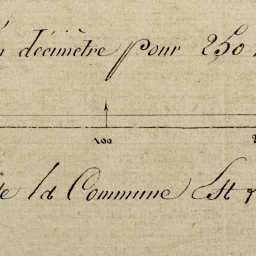 décimètre pour 250
100
de la Commune Est